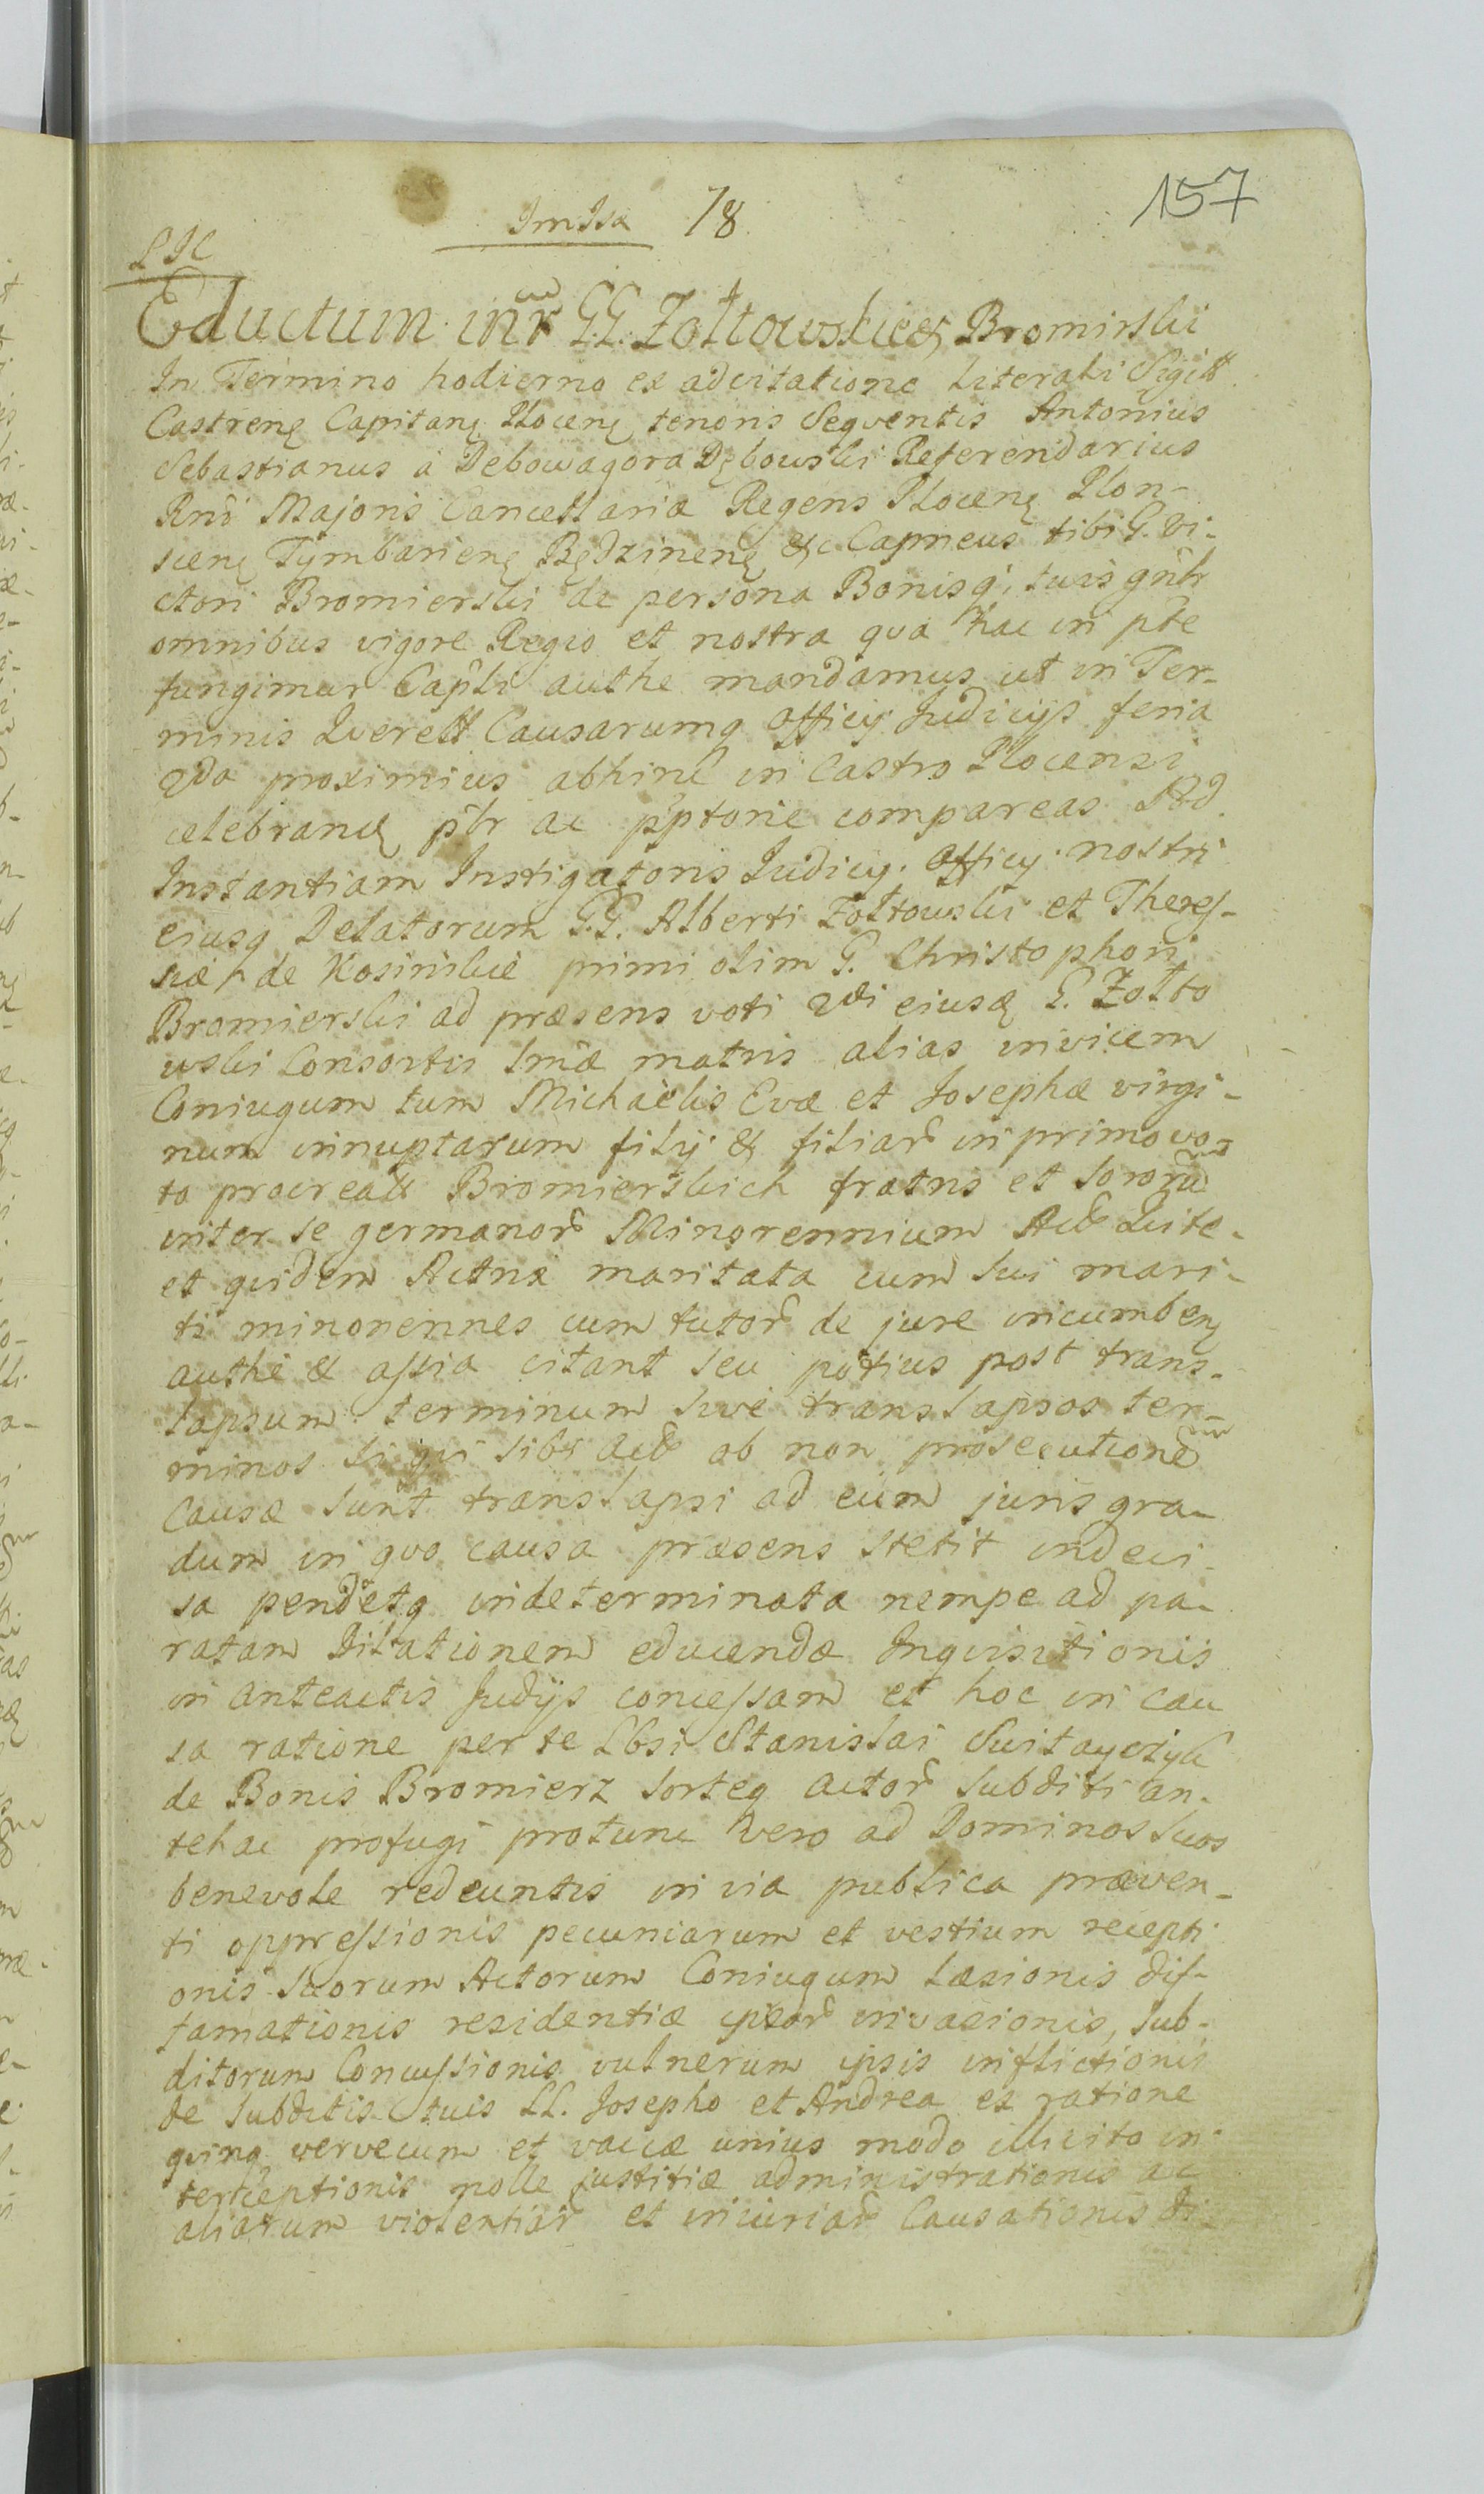 157
Imssa 78.
LJC
Eductum intr GG. Zołtowskie & Bromirski
In Termino hodierno ex adcitatione Literali Sigill
Castrenę Capitanę Płocenę tenoris Seqventis Antonius
Sebastianus a Debowagora Dębowski Referendarius
Rnĩ Majoris Cancellariæ Regens Płocenę Płon-
scenę Tymbarienę Będzinenę &c Capneus tibi G. Vi-
ctori Bromierski de persona Bonisq; tuis gñlr
omnibus vigore Regio et nostra qva hac in pte
fungimur Capĩli authe mandamus ut in Ter-
minis Qverell Causarumq Officij Judicijs feria
2da proximius abhinc in Castro Płocensi
celebrandę pr̃lr ac pptorie compareas Ad
Instantiam Instigatoris Judicij Officij nostri
eiusq Delatorum G.G. Alberti Zołtowski et Theres-
siæ de Kosinskie primi olim G. Christophori
Bromierski ad præsens voti 2di eiusq G. Zołto
wski Consortis Lmæ matris alias invicem
Coniugum tum Michaelis Evæ et Josephæ virgi-
num innuptarum filij & filiar in primo vo-
to procreatt Bromierskich fratris et Soror
inter se germanor Minorennium Act Lite-
et qvidem Actrix maritata cum Sui mari-
ti minorennes cum tutor de jure incumbenę
authe & assia citant seu potius post trans-
lapsum terminum Sive translapsos ter-
minos Si qvi Sibi act ob non prosecutione
Causæ Sunt translapsi ad eum juris gra-
dum in qvo causa præsens stetit indeci-
sa pendetq indeterminata nempe ad pa-
ratam Dilationem educendæ Inqvisitionis
in anteactis Judijs concessam et hoc in cau
sa ratione per te Lbsi Stanislai Suitayczyk
de Bonis Bromierz Sorteq actor Subditi an-
tehac profugi protunc vero ad Dominos Suos
benevole redeuntis in via publica præven-
ti oppressionis pecuniarum et vestium recepti
onis Suorum Actorum Coniugum Læsionis dif-
famationis residentiæ ipsor invasionis, Sub-
ditorum Concussionis vulnerum ipsis inflictionis
de Subditis tuis LL. Josepho et Andrea ex ratione
qvinq vervecum et vaccæ unius modo illicito in-
terceptionis nolle justitiæ administrationis ac
aliarum violentiar et iniuriar Causationis di-